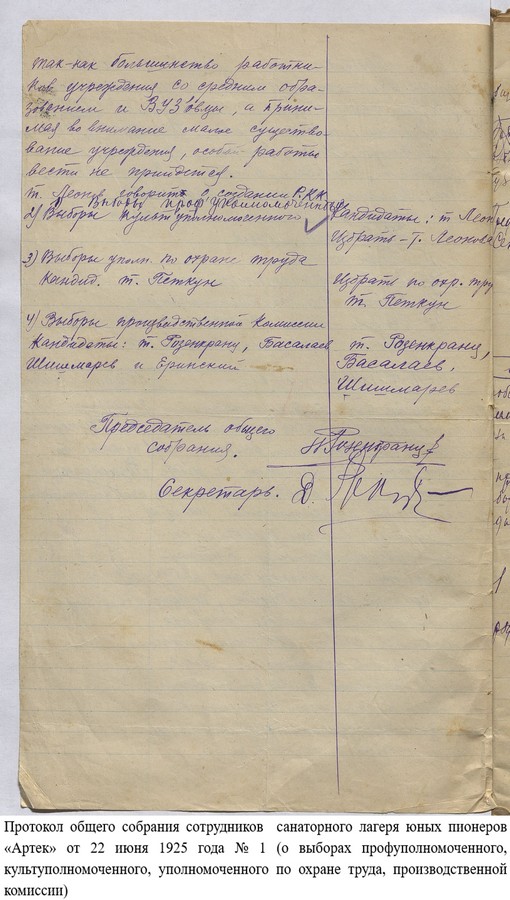 так-как большинство работни-
ков учреждения со средним обра-
зованием и ВУЗ'овцы, а прини-
мая во внимание малое существо-
вание учреждения, особой работы
вести не придется.
т. Леонов говорит о создании Р.К.К.
Выборы профуполномоченных
2) Выборы культуполномоченного
Кандидаты: т. Леон
Избрать - т. Леонова
3) Выборы уполн. по охране труда
Кандид. т. Петкун
Избрать по охр. тру
т. Петкун
4) Выборы производственной комиссии
Кандидаты: т. Розенкранц, Басалаев
Шишмарев и Еринский
т. Розенкранц,
Басалаев,
Шишмарев
Председатель общего
собрания.
Розенкранц
Секретарь. Д.
Протокол общего собрания сотрудников санаторного лагеря юных пионеров
«Артек» от 22 июня 1925 года № 1 (о выборах профуполномоченного,
культуполномоченного, уполномоченного по охране труда, производственной
комиссии)